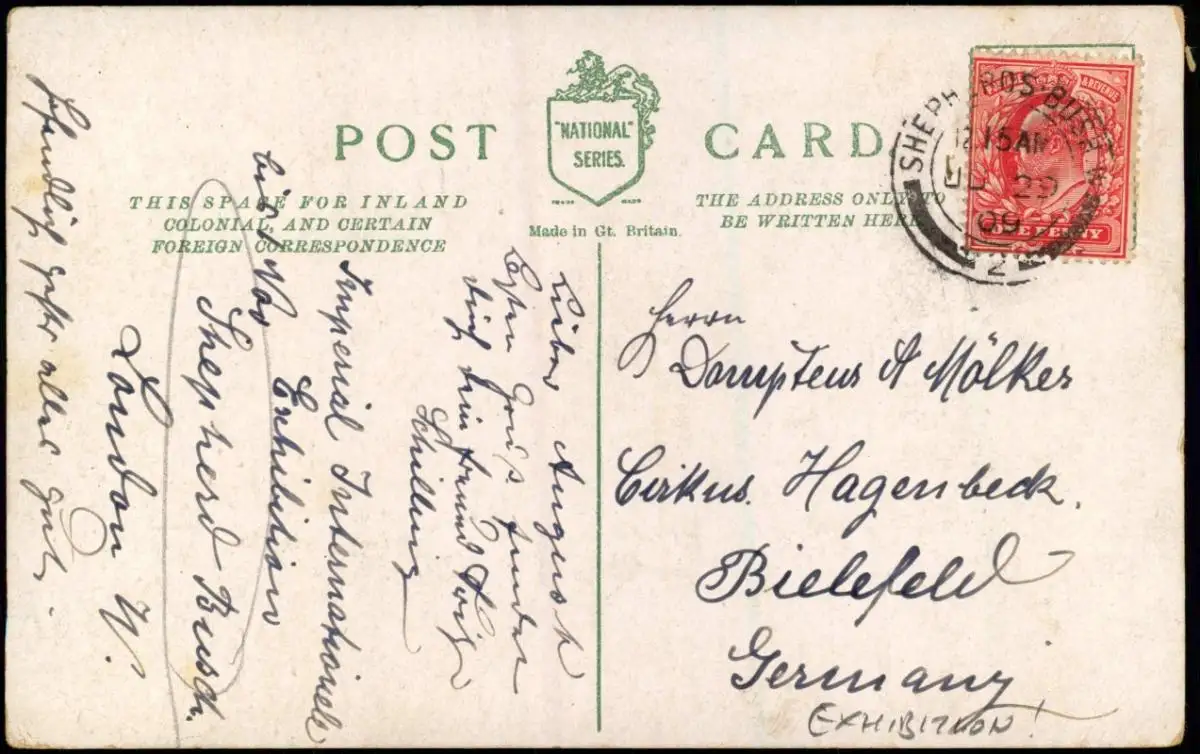 POST CARD
"NATIONAL"
SERIES.
TRADE MARK
THIS SPACE FOR INLAND
COLONIAL, AND CERTAIN
FOREIGN CORRESPONDENCE
Made in Gt. Britain.
THE ADDRESS ONLY TO
BE WRITTEN HERE
SHEPHERDS·BUSH
12.15AM
JL 29
09
2
& REVENUE
ONE PENNY
Lieber August
Besten Gruß sendet
dich dein Freund
Schilling
Imperial International
Exhibition
bis Nov
Shepherd Busch.
London W.
Hoffendlich geht alles gut.
Herrn
Dompteur A Mölker
Cirkus. Hagenbeck.
Bielefeld
Germany
EXHIBITION!